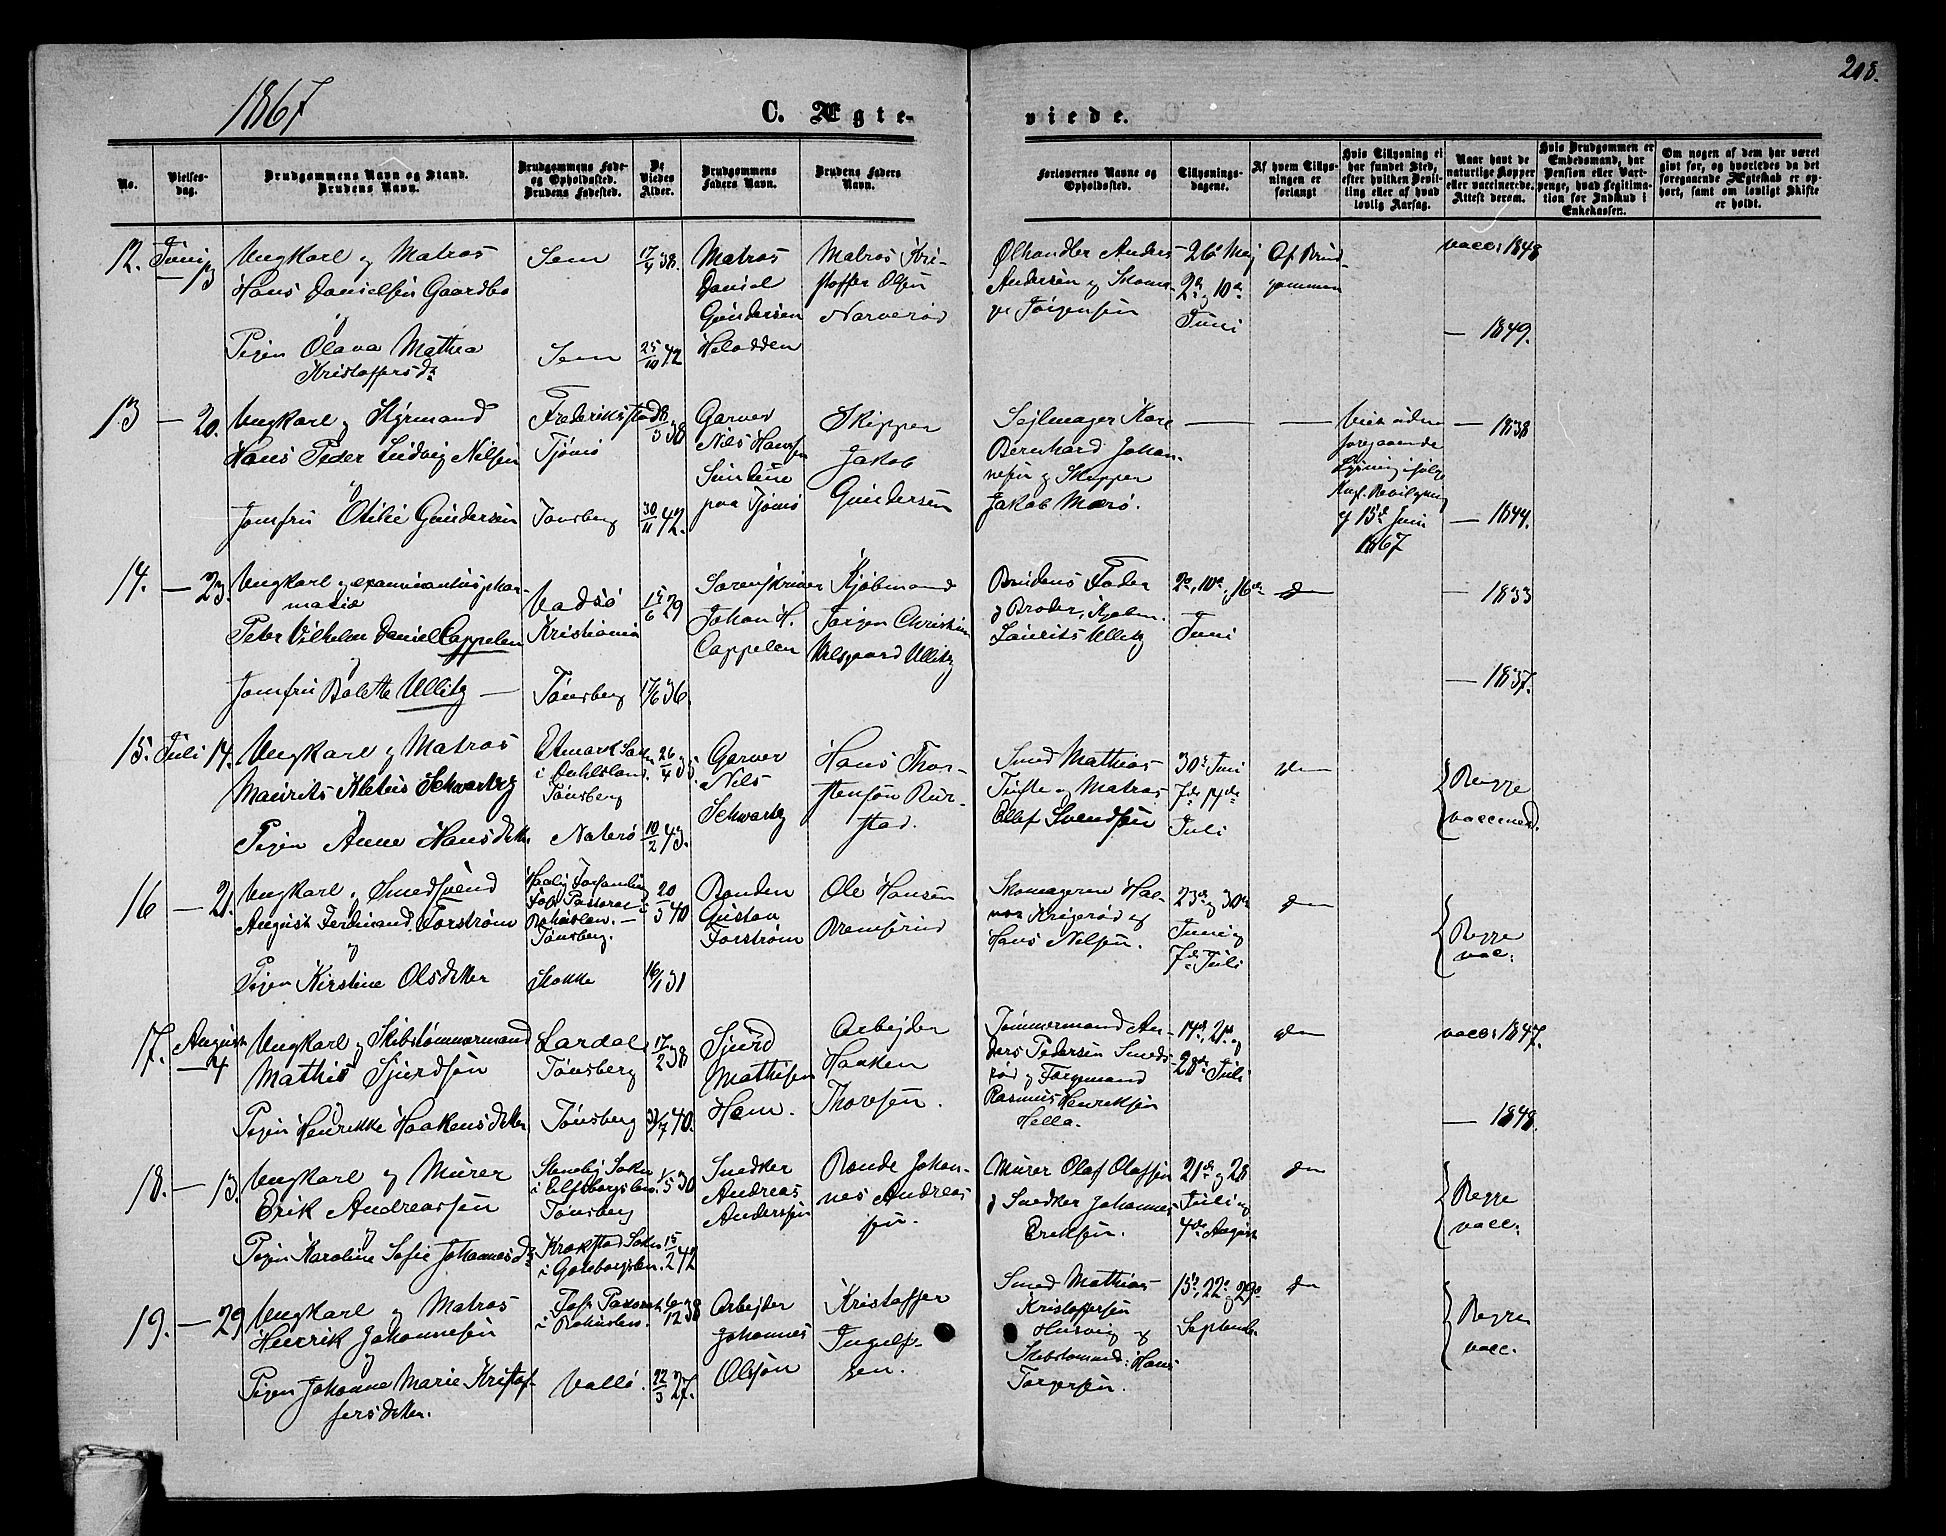 1867
208.
C. Ægte-
viede.
No.
Vielses-
dag.
Brudgommens Navn og Stand.
Brudens Navn.
Brudgommens Føde-
og Opholdssted.
Brudens Fødested.
De
Viedes
Alder.
Brudgommens
Faders Navn.
Brudens Faders
Navn.
Forlovernes Navne og
Opholdssted.
Tillysnings-
dagene.
Af hvem Tillys-
ningen er
forlangt.
Hvis Tillysning ei
har fundet Sted,
efter hvilken Bevil-
ling eller af hvad
lovlig Aarsag.
Naar havt de
naturlige Kopper
eller vaccinerede.
Attest derom.
Hvis Brudgommen er
Embedsmand, har
Pension eller Vart-
penge, hvad Legitima-
tion for Indskud i
Enkekassen.
Om nogen af dem har været
givt før, og hvorledes da det
foregaaende Ægteskab er op-
hørt, samt om lovligt Skifte
er holdt.
12. Juni 13
Ungkarl og Matros
Hans Danielsen Gaardbo
og
Pigen Olava Mathea
Kristoffersd.
Sem
Sem
17/4 38.
25/10 42
Matros
Daniel
Gundersen
Matros Kri-
stoffer Olsen
Narverød
Ølhandler Anders
Andersen og Skoma-
ger Jørgensen
26. Maj
2den og 10de
Juni
Af Brud-
gommen
vacc: 1848
— 1849.
13 — 20.
Ungkarl og Styrmand
Hans Peder Ludvig Nilsen
og
Jomfru Otilie Gundersen
Frederikstad
Tjømø
Tønsberg
30/11 42.
Garver
Nils Hansen
paa Tjømø
Skipper
Jakob
Gundersen
Sejlmager Karl
Bernhard Johan-
nesen og Skipper
Jakob Mærø.
— —
Viet uden
foregaaende
Lysning ifølge
Kngl. Bevilgning
af 15de Juni
1867
— 1838
— 1844.
14. — 23.
Ungkarl og examinantus phar-
maciæ
Peter Vilhelm Daniel Cappelen
og
Jomfru Bolette Ullitz —
Vadsø
Kristiania
Tønsberg
15/6 29
17/6 36.
Sorenskriver
Johan H.
Cappelen
Kjøbmand
Jørgen Christian
Velsgaard Ullitz
Brudens Fader
og Broder, Kjøbm.
Laurits Ullitz
2den, 10de, 16de
Juni
do
— 1833
— 1837.
15. Juli 14.
Ungkarl og Matros
Maurits Kletus Schwartz
og
Pigen Anne Hansdatter
i Dahlsland.
Tønsberg
Nøterø
26/4 35.
10/2 43.
Garver
Nils
Schwartz
Hans Thor-
stensen Rør-
stad.
Smed Mathias
Tufte og Matros
Olef Svendsen
30te Juni
7de, 14de
Juli
do
Begge
vaccinerd.
16 — 21.
Ungkarl, Smedsvend
August Ferdinand Forstrøm
og
Pigen Kirstine Olsdatter
Bohuslen. —
Tønsberg.
Stokke
20/3 40
16/1 31
Bonden
Gustav
Forstrøm
Ole Hansen
Bramsrud
Skomagerne Hal-
vor Krigerød og
Hans Nilsen.
23de og 30te
Juni og
7de Juli
do
Begge
vac:
17. August 4
Ungkarl og Skibstømmermand
Mathis Sjurdsøn
og
Pigen Henrikke Haakensdatter
Lardal
Tønsberg
Tønsberg
17/2 38
Sjurd
Mathisen
Hem.
Arbejder
Haaken
Thoresen.
Tømmermand An-
ders Pedersen Smeds-
rød og Forgmand
Rasmus Henriksen
Hella.
14de, 21de og
28de Juli
do
vacc: 1847.
— 1848.
18. — 13.
Ungkarl og Murer
Erik Andreassen
og
Pigen Karoline Sofie Johannesd.
Steneby Sokn
i Elfsborgslen.
Tønsberg
Krokstad Sokn
i Gøteborgslen.
1/5 30
15/2 42
Snedker
Andreas
Anderssen
Bonde Johan-
nes Andreas-
sen.
Murer Olaf Olafsen
og Snedker Johannes
Eriksen.
21de og 28
Juli og
4de August
do
Begge
vacc:
19. — 29
Ungkarl og Matros
Henrik Johannesen
og
Pigen Johanne Marie Kristof-
fersdatter.
i Bohuslen.
Vallø
6/12 38
22/3 27.
Arbejder
Johannes
Olsøn
Kristoffer
Ingulf-
sen.
Smed Mathias
Kristoffersen
Husvig og
Skibstømmd: Hans
Torgersen.
15de, 22de og 29de
September
do
Begge
vacc.